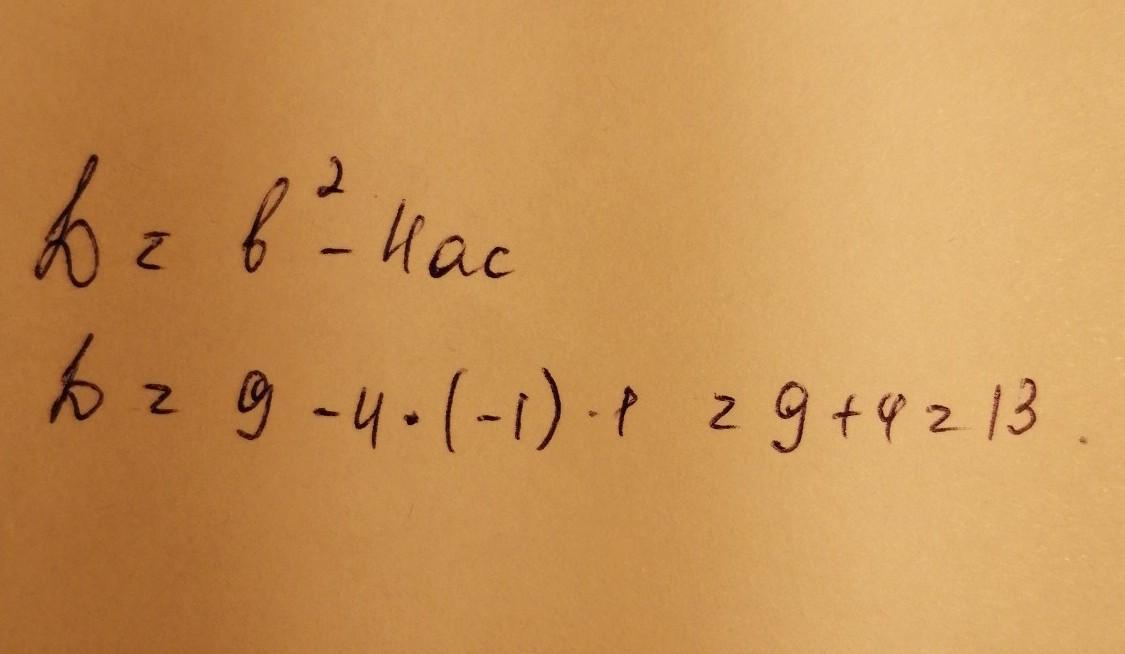 D = b² - 4ac
D = 9 - 4 · (-1) · 1 = 9 + 4 = 13.